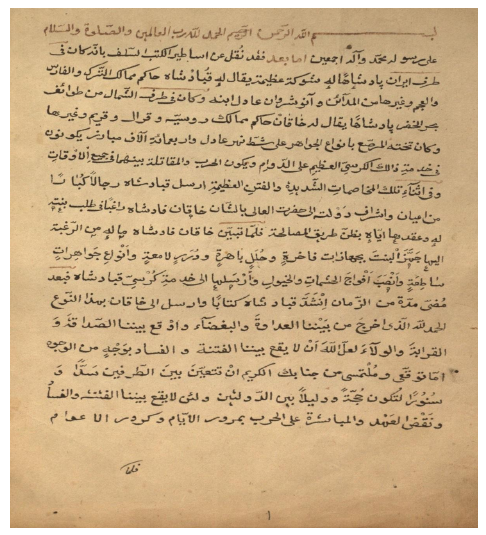 بسم الله الرحمن الرحيم الحمد لله رب العالمين والصلوة والسلام
على رسوله محمد وآله اجمعين اما بعد فقد نقل عن اساطير الكتب السلف بانّه كان فى
طرف ايران پادشاهًا له شوكة عظيمة يقال له قبادشاه حاكم ممالك الترك والفارس
والعجم وغيرها من المدائن و آنوشروان عادل ابنه وكان فى طرف الشمال من طوائف
بحر الخضر پادشاهًا يقال له خاقان حاكم ممالك و روسيه و قرال و قريم وغيرها
وكان تخته المرصّع بانواع الجواهر على شط نهر عادل واربعمائة آلاف مبادر يكونون
فى خدمة ذالك الكرسى العظيم على الدّوام ويكون الحرب والمقاتلة بينهما فى جميع الاوقات
وفى اثناء تلك المخاصمات الشديدة والفتن العظيمة ارسل قبادشاه رجالًا كبارًا
من اعيان واشراف دولت الى حضرت العالى بالشان خاقان فادشاه راغبًا فى طلب بنته
له وعقدها ايّاه بظن طريق المصالحة فلما تبيّن خاقان فادشاه ماله من الرغبة
اليها جهّز البنت بجهازات فاخرةٍ وحُللٍ باهرةٍ و دُررٍ لامعةٍ وانواع جواهراتٍ
ساطعةٍ وافواج الحشمات والخيول وارسلها الى خدمة كرسىّ قبادشاه فبعد
مُضى مدة من الزمان انشد قبادشاه كتابًا وارسل الى خاقان بهذا النوع
الحمد لله الذى اخرج من بيننا العداوة والبغضاء واوقع بيننا الصداقة و
القرابة والولاء لعل الله ان لا يقع بيننا الفتنة و الفساد بوجهٍ من الوجوه
امّا توقعى ومُلتمسى من جنابك الكريم ان تتعيّن بين الطرفين سدًّا و
سُتورًا لتكون حجّةً ودليلًا بين الدولتين ولئن لا يقع بيننا الفتنة والفساد
ونقض العهد والمباشرة على الحرب بمرور الايّام وكرور الاعوام
فلما